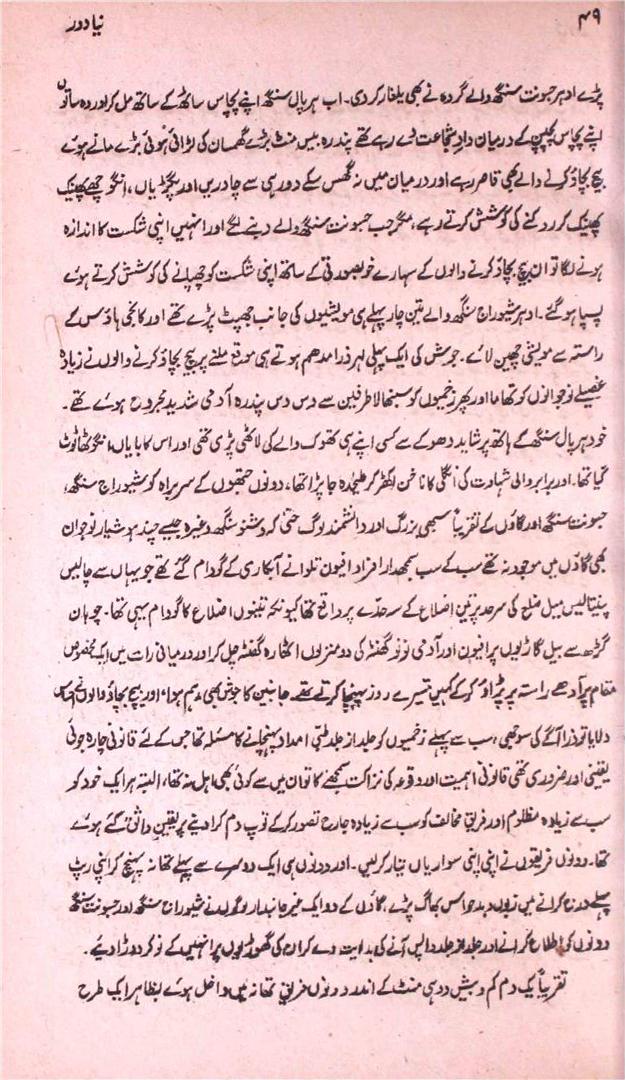 ۴۹
نیا دور
پڑے ادہر جبونت سنگھ والے گروہ نے بھی یلغار کر دی۔ اب ہرپال سنگھ اپنے پچاس ساٹھ کے ساتھ مل کر اور وہ ساتوں
اپنے پچاس پچپن کے درمیان دادِ شجاعت دے رہے تھے پندرہ بیس منٹ بڑے گھمسان کی لڑائی ہوئی بڑے مانے ہوئے
بیچ بچاؤ کرنے والے بھی قاصر رہے اور درمیان میں نہ گھس سکے دور ہی سے چادریں اور پگڑیاں، انگوچھے پھینک
پھینک کر روکنے کی کوشش کرتے رہے، مگر جب جبونت سنگھ والے دبنے لگے اور انہیں اپنی شکست کا اندازہ
ہونے لگا تو ان بیچ بچاؤ کرنے والوں کے سہارے خوبصورتی کے ساتھ اپنی شکست کو چھپانے کی کوشش کرتے ہوئے
پسپا ہو گئے۔ ادہر شیوراج سنگھ والے تین چار پہلے ہی مویشیوں کی جانب جھپٹ پڑے تھے اور کانجی ہاؤس کے
راستہ سے مویشی چھین لائے۔ جوش کی ایک پہلی لہر ذرا مدھم ہوتے ہی موقع ملنے پر بیچ بچاؤ کرنے والوں نے زیادہ
غصیلے نوجوانوں کو تھاما اور پھر زخمیوں کو سنبھالا طرفین سے دس دس پندرہ آدمی شدید مجروح ہوئے تھے۔
خود ہرپال سنگھ کے ہاتھ پر شاید دھوکے سے کسی اپنے ہی تھوک والے کی لاٹھی پڑی تھی اور اس کا بایاں انگوٹھا ٹوٹ
گیا تھا۔ اور برابر والی شہادت کی انگلی کا ناخن اکھڑ کر علیحدہ جا پڑا تھا، دونوں جتھوں کے سربراہ کو شیوراج سنگھ،
جبونت سنگھ اور گاؤں کے تقریباً سبھی بزرگ اور دانشمند لوگ حتیٰ کہ وشنو سنگھ وغیرہ جیسے چند ہوشیار نوجوان
بھی گاؤں میں موجود نہ تھے سب کے سب سمجھدار افراد افیون تلوانے آبکاری کے گودام گئے تھے جو یہاں سے چالیس
پینتالیس میل ضلع کی سرحد پر تین اضلاع کے سرحدے پر واقع تھا کیونکہ تینوں اضلاع کا گودام یہی تھا۔ چوہان
گڑھ سے بیل گاڑیوں پر افیون اور آدمی نو نو گھنٹہ کی دو منزلوں اٹھارہ گھنٹہ چل کر اور درمیانی رات میں ایک مخصوص
مقام پر آدھے راستہ پر پڑاؤ کر کے کہیں تیسرے روز پہنچا کرتے تھے۔ جانبین کا جوش بھی مدہم ہوا، اور بیچ بچاؤ والوں نے احساس
دلایا تو ذرا آگے کی سوجھی، سب سے پہلے زخمیوں کو جلد از جلد طبی امداد پہنچانے کا مسئلہ تھا جس کے لئے قانونی چارہ جوئی
یقینی اور ضروری تھی قانونی اہمیت اور وقوعہ کی نزاکت سمجھنے کا تو ان میں سے کوئی بھی اہل نہ تھا، البتہ ہر ایک خود کو
سب سے زیادہ مظلوم اور فریق مخالف کو سب سے زیادہ جارح تصور کر کے توپ دم کرا دینے پر یقین واثق کئے ہوئے
تھا۔ دونوں فریقوں نے اپنی اپنی سواریاں تیار کر لیں۔ اور دونوں ہی ایک دوسرے سے پہلے تھانہ پہنچ کر اپنی رپٹ
پہلے درج کرانے میں بدحواس بھاگ پڑے، گاؤں کے دو ایک غیر جانبدار لوگوں نے شیوراج سنگھ اور جبونت سنگھ
دونوں کو اطلاع کرانے اور جلد از جلد واپس آنے کی ہدایت دے کر ان کی گھوڑیوں پر انہیں کے نوکر دوڑا دیئے۔
تقریباً یک دم کم و بیش دو ہی منٹ کے اندر دونوں فریق تھانہ میں داخل ہوئے بظاہر ایک طرح